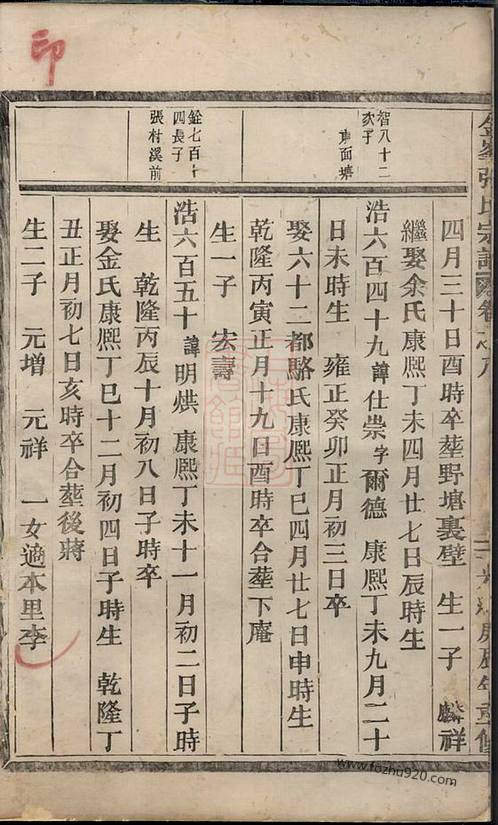 印
智八十二
次子
車面塘
銓七百十
四長子
張村溪前
四月三十日酉時卒塟野塘裏壁 生一子 麟祥
繼娶余氏康熙丁未四月廿七日辰時生
浩六百四十九諱仕崇字爾德 康熙丁未九月二十
日未時生 雍正癸卯正月初三日卒
娶六十二都駱氏康熙丁巳四月廿七日申時生
乾隆丙寅正月十九日酉時卒合塟下庵
生一子 宏壽
浩六百五十諱明烘 康熙丁未十一月初二日子時
生 乾隆丙辰十月初八日子時卒
娶金氏康熙丁巳十二月初四日子時生 乾隆丁
丑正月初七日亥時卒合塟後蔣
生二子 元增 元祥 一女適本里李
www.fozhu920.com